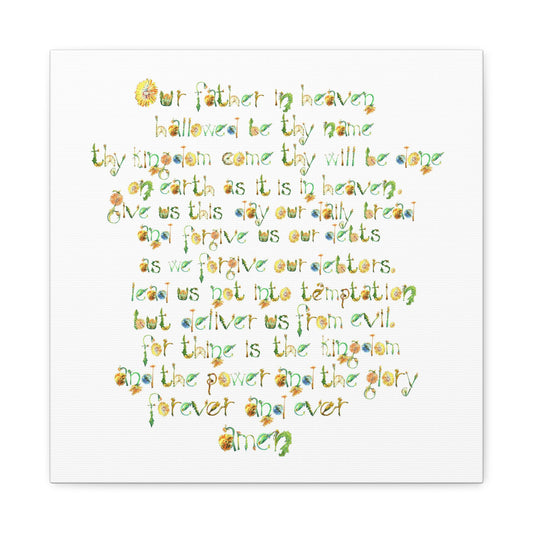 Our father in heaven
hallowed be thy name
thy kingdom come thy will be done
on earth as it is in heaven.
Give us this day our daily bread
and forgive us our debts
as we forgive our debtors.
lead us not into temptation
but deliver us from evil.
for thine is the kingdom
and the power and the glory
forever and ever
amen